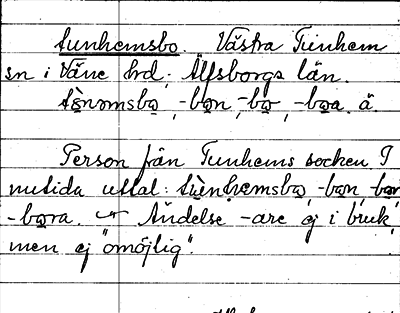 tunhemsbo. Västra Tunhem
sn i Väne hrd. Älfsborgs län.
tɷ̀nomsbɷ, -bɷn, -bɷr, -bɷra. ä.
Person från Tunhems socken. I
nutida uttal: tɷ̀nhemsbɷ, -bɷn, bɷr
-bɷra. Ändelse -are ej i bruk,
men ej "omöjlig".